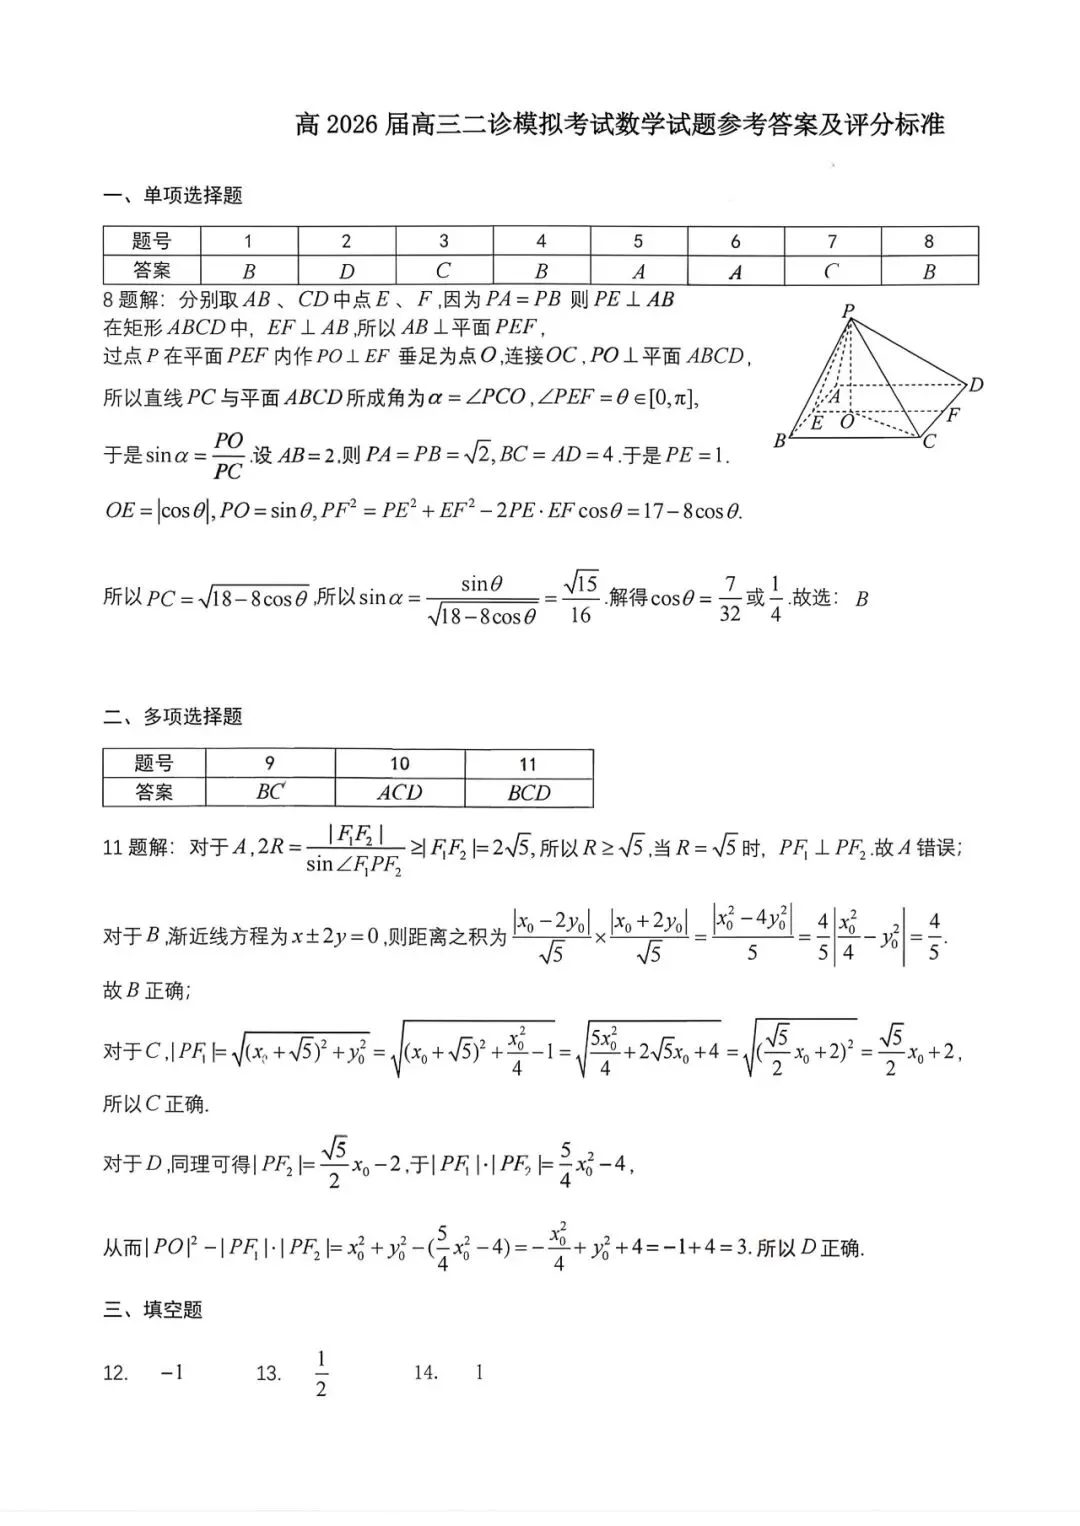 高 2026 届高三二诊模拟考试数学试题参考答案及评分标准
一、单项选择题
题号 1 2 3 4 5 6 7 8
答案 B D C B A A C B
8 题解：分别取 AB 、CD 中点 E 、F ,因为 PA = PB 则 PE ⊥ AB
在矩形 ABCD 中, EF ⊥ AB ,所以 AB ⊥平面 PEF ,
过点 P 在平面 PEF 内作 PO ⊥ EF 垂足为点 O ,连接 OC , PO ⊥平面 ABCD ,
所以直线 PC 与平面 ABCD 所成角为 α = ∠PCO , ∠PEF = θ ∈ [0, π],
于是 sin α = PO/PC .设 AB = 2 .则 PA = PB = √2, BC = AD = 4 .于是 PE = 1 .
OE = |cos θ|, PO = sin θ, PF² = PE² + EF² − 2PE · EF cos θ = 17 − 8cos θ.
所以 PC = √(18 − 8cos θ) ,所以 sin α = sin θ/√(18 − 8cos θ) = √15/16 .解得 cos θ = 7/32 或 1/4 .故选： B
P
A
B
C
D
E
O
F
二、多项选择题
题号 9 10 11
答案 BC ACD BCD
11 题解：对于 A , 2R = |F₁F₂|/sin∠F₁PF₂ ≥| F₁F₂ |= 2√5, 所以 R ≥ √5 ,当 R = √5 时, PF₁ ⊥ PF₂ .故 A 错误；
对于 B ,渐近线方程为 x ± 2y = 0 ,则距离之积为 |x₀ − 2y₀|/√5 × |x₀ + 2y₀|/√5 = |x₀² − 4y₀²|/5 = 4/5 |x₀²/4 − y₀²| = 4/5 .
故 B 正确；
对于 C ,| PF₁ |= √((x₀ + √5)² + y₀²) = √((x₀ + √5)² + x₀²/4 − 1) = √(5x₀²/4 + 2√5x₀ + 4) = √((√5/2 x₀ + 2)²) = √5/2 x₀ + 2 ,
所以 C 正确.
对于 D ,同理可得 | PF₂ |= √5/2 x₀ − 2 ,于 | PF₁ | · | PF₂ |= 5/4 x₀² − 4 ,
从而 | PO |² − | PF₁ | · | PF₂ |= x₀² + y₀² − (5/4 x₀² − 4) = − x₀²/4 + y₀² + 4 = −1 + 4 = 3. 所以 D 正确.
三、填空题
12. −1 13. 1/2 14. 1